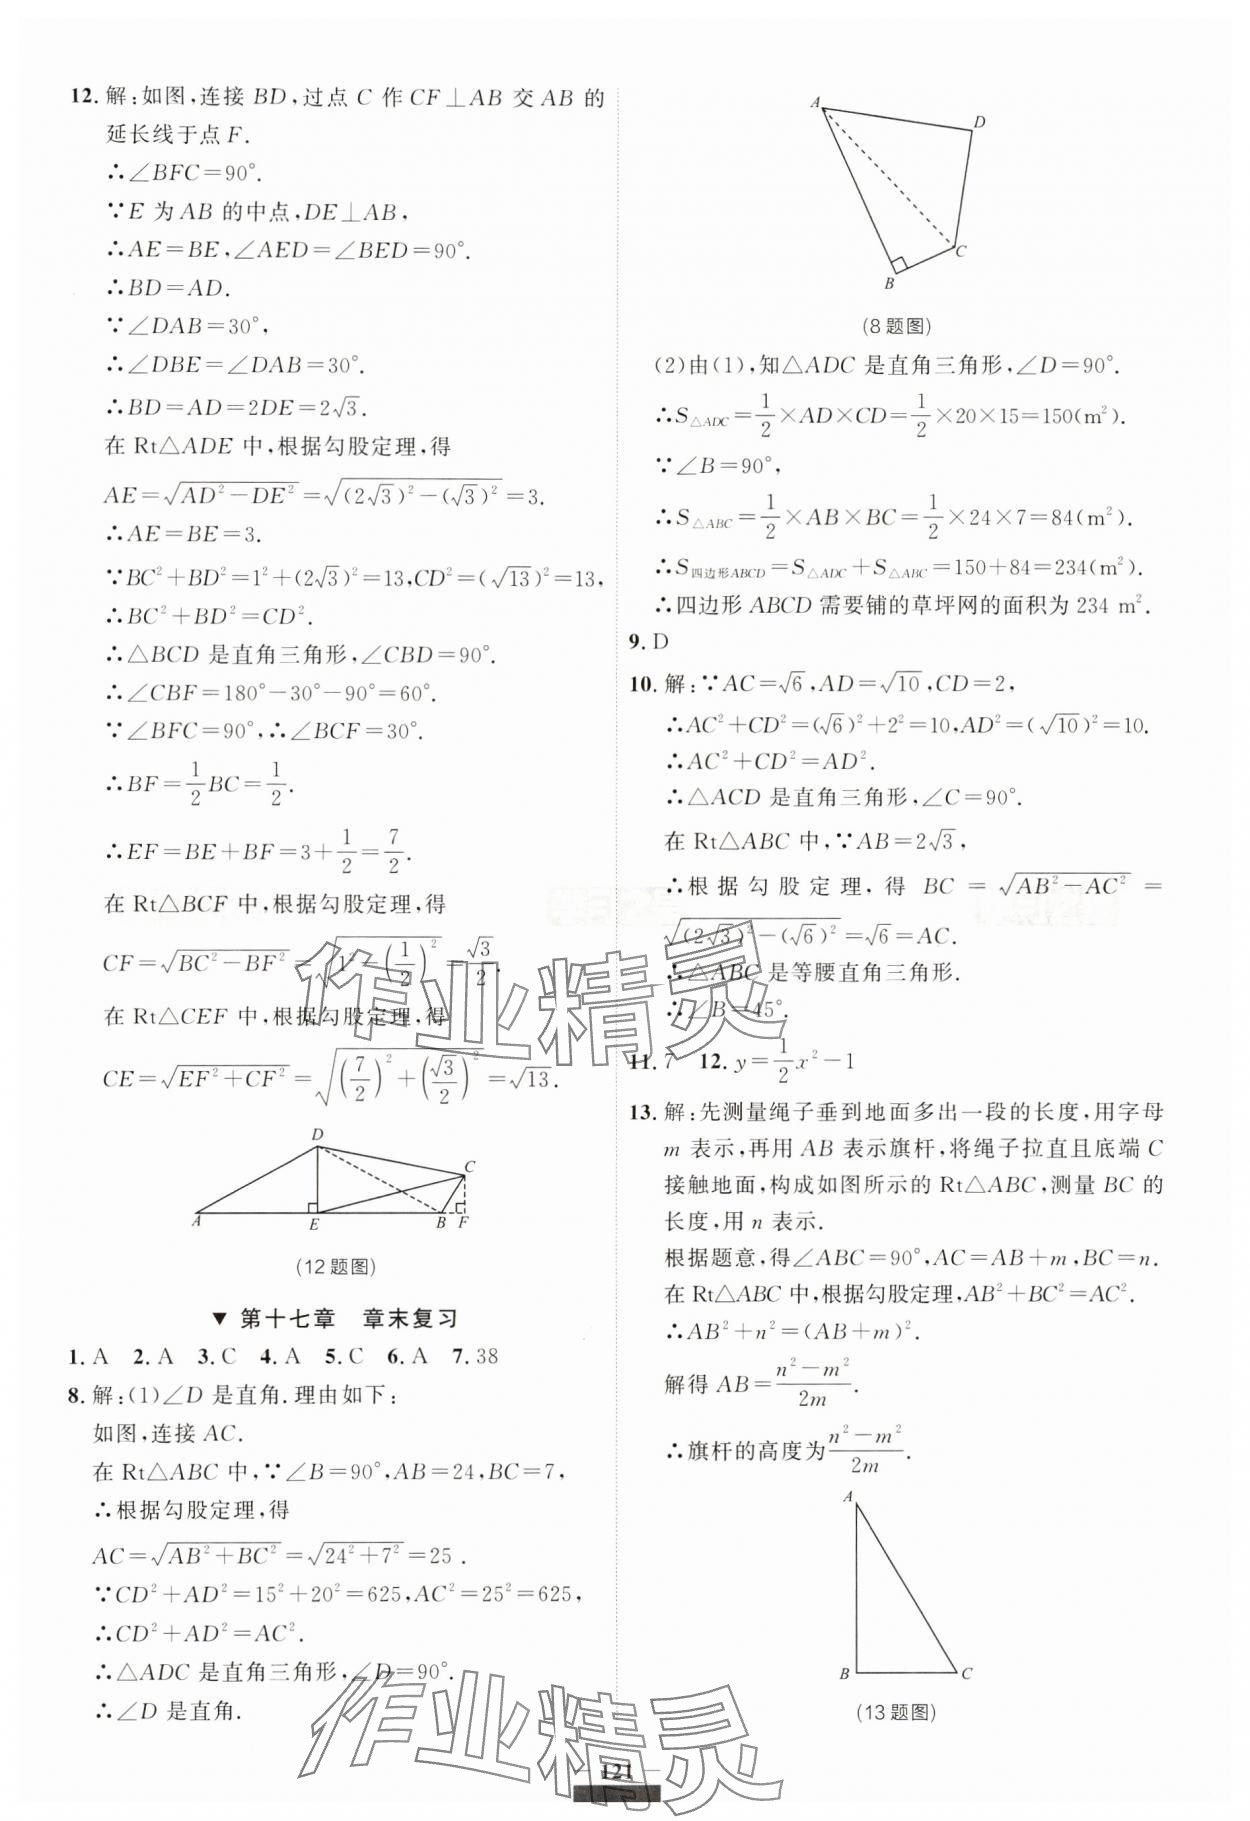 12. 解:如图,连接 BD,过点 C 作 CF⊥AB 交 AB 的
延长线于点 F.
∴∠BFC=90°.
∵E 为 AB 的中点,DE⊥AB,
∴AE=BE,∠AED=∠BED=90°.
∴BD=AD.
∵∠DAB=30°,
∴∠DBE=∠DAB=30°.
∴BD=AD=2DE=2√3.
在 Rt△ADE 中,根据勾股定理,得
AE=√(AD²-DE²)=√((2√3)²-(√3)²)=3.
∴AE=BE=3.
∵BC²+BD²=1²+(2√3)²=13,CD²=(√13)²=13,
∴BC²+BD²=CD².
∴△BCD 是直角三角形,∠CBD=90°.
∴∠CBF=180°-30°-90°=60°.
∵∠BFC=90°,∴∠BCF=30°.
∴BF=1/2BC=1/2.
∴EF=BE+BF=3+1/2=7/2.
在 Rt△BCF 中,根据勾股定理,得
CF=√(BC²-BF²)=√(1²-(1/2)²)=√3/2.
在 Rt△CEF 中,根据勾股定理,得
CE=√(EF²+CF²)=√((7/2)²+(√3/2)²)=√13.
D
C
A E B F
(12题图)
▼ 第十七章 章末复习
1. A 2. A 3. C 4. A 5. C 6. A 7. 38
8. 解:(1)∠D 是直角.理由如下:
如图,连接 AC.
在 Rt△ABC 中,∵∠B=90°,AB=24,BC=7,
∴根据勾股定理,得
AC=√(AB²+BC²)=√(24²+7²)=25.
∵CD²+AD²=15²+20²=625,AC²=25²=625,
∴CD²+AD²=AC².
∴△ADC 是直角三角形,∠D=90°.
∴∠D 是直角.
A
D
C
B
(8题图)
(2)由(1),知△ADC 是直角三角形,∠D=90°.
∴S△ADC=1/2×AD×CD=1/2×20×15=150(m²).
∵∠B=90°,
∴S△ABC=1/2×AB×BC=1/2×24×7=84(m²).
∴S四边形ABCD=S△ADC+S△ABC=150+84=234(m²).
∴四边形 ABCD 需要铺的草坪网的面积为 234 m².
9. D
10. 解:∵AC=√6,AD=√10,CD=2,
∴AC²+CD²=(√6)²+2²=10,AD²=(√10)²=10.
∴AC²+CD²=AD².
∴△ACD 是直角三角形,∠C=90°.
在 Rt△ABC 中,∵AB=2√3,
∴根据勾股定理,得 BC=√(AB²-AC²)=
√((2√3)²-(√6)²)=√6=AC.
∴△ABC 是等腰直角三角形.
∴∠B=45°.
11. 7 12. y=1/2x²-1
13. 解:先测量绳子垂到地面多出一段的长度,用字母
m 表示,再用 AB 表示旗杆,将绳子拉直且底端 C
接触地面,构成如图所示的 Rt△ABC,测量 BC 的
长度,用 n 表示.
根据题意,得∠ABC=90°,AC=AB+m,BC=n.
在 Rt△ABC 中,根据勾股定理,AB²+BC²=AC².
∴AB²+n²=(AB+m)².
解得 AB=(n²-m²)/2m.
∴旗杆的高度为(n²-m²)/2m.
A
B C
(13题图)
作业精灵
作业精灵
121